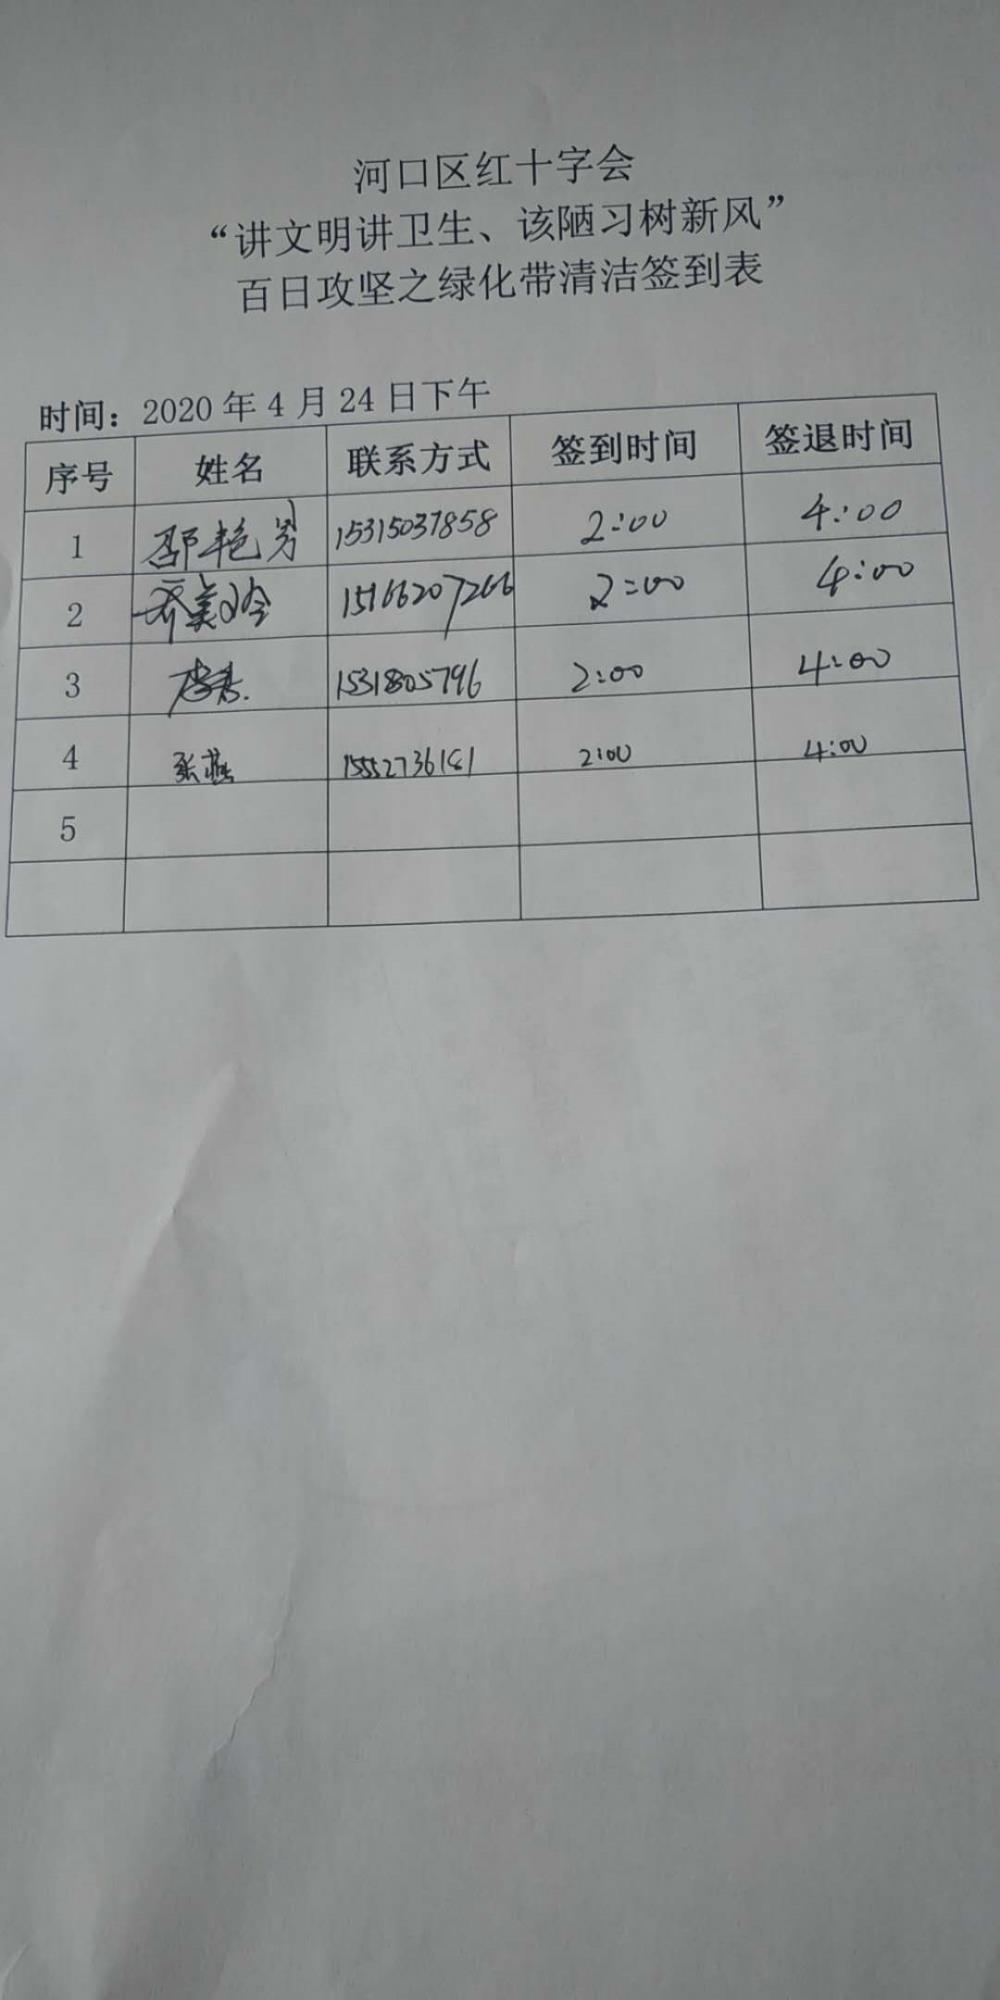 河口区红十字会
“讲文明讲卫生、该陋习树新风”
百日攻坚之绿化带清洁签到表
时间：2020年4月24日下午
序号 姓名 联系方式 签到时间 签退时间
1 邵艳芳 15315037858 2:00 4:00
2 齐美玲 15166207266 2:00 4:00
3 1531805796 2:00 4:00
4 张燕 2:00 4:00
5